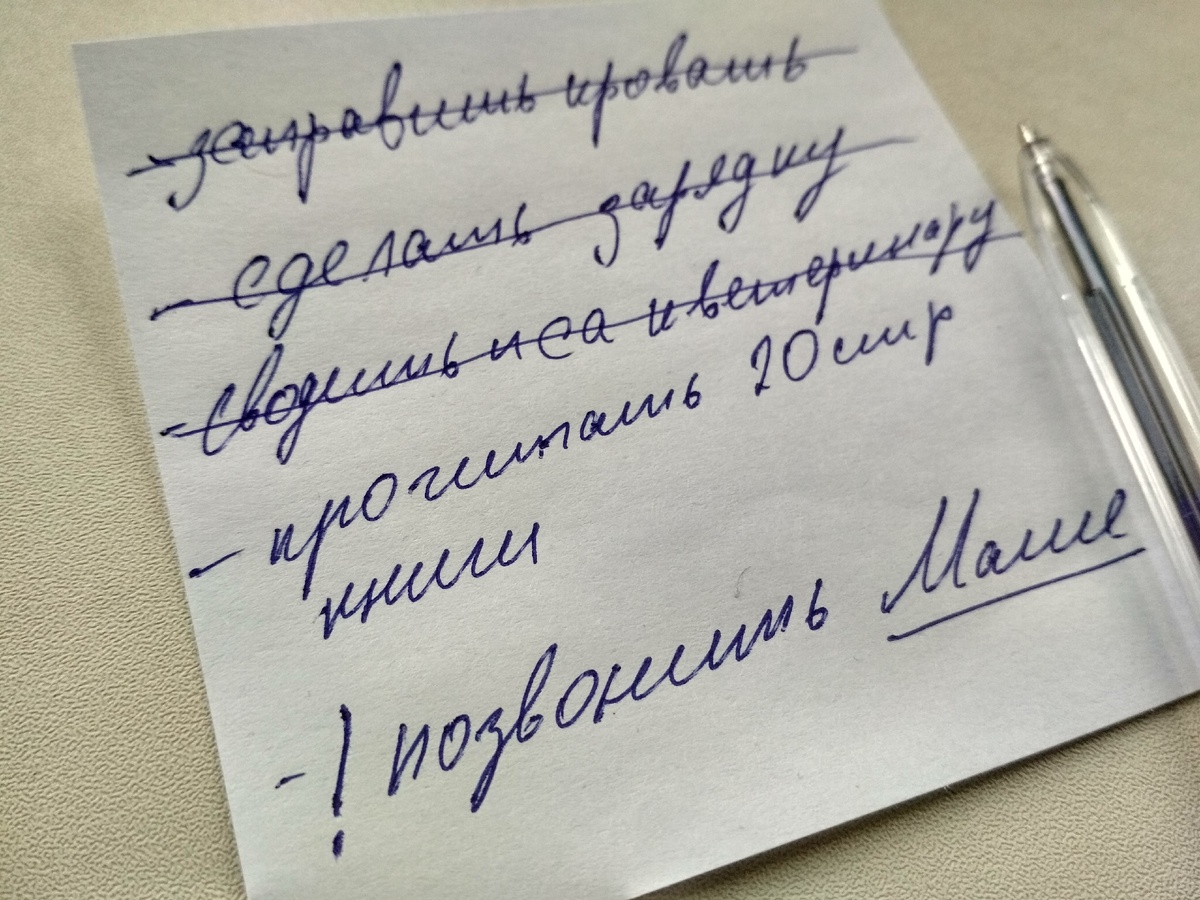 - заправить кровать
- сделать зарядку
- сводить пса к ветеринару
- прочитать 20 стр
книги
- ! позвонить Маше